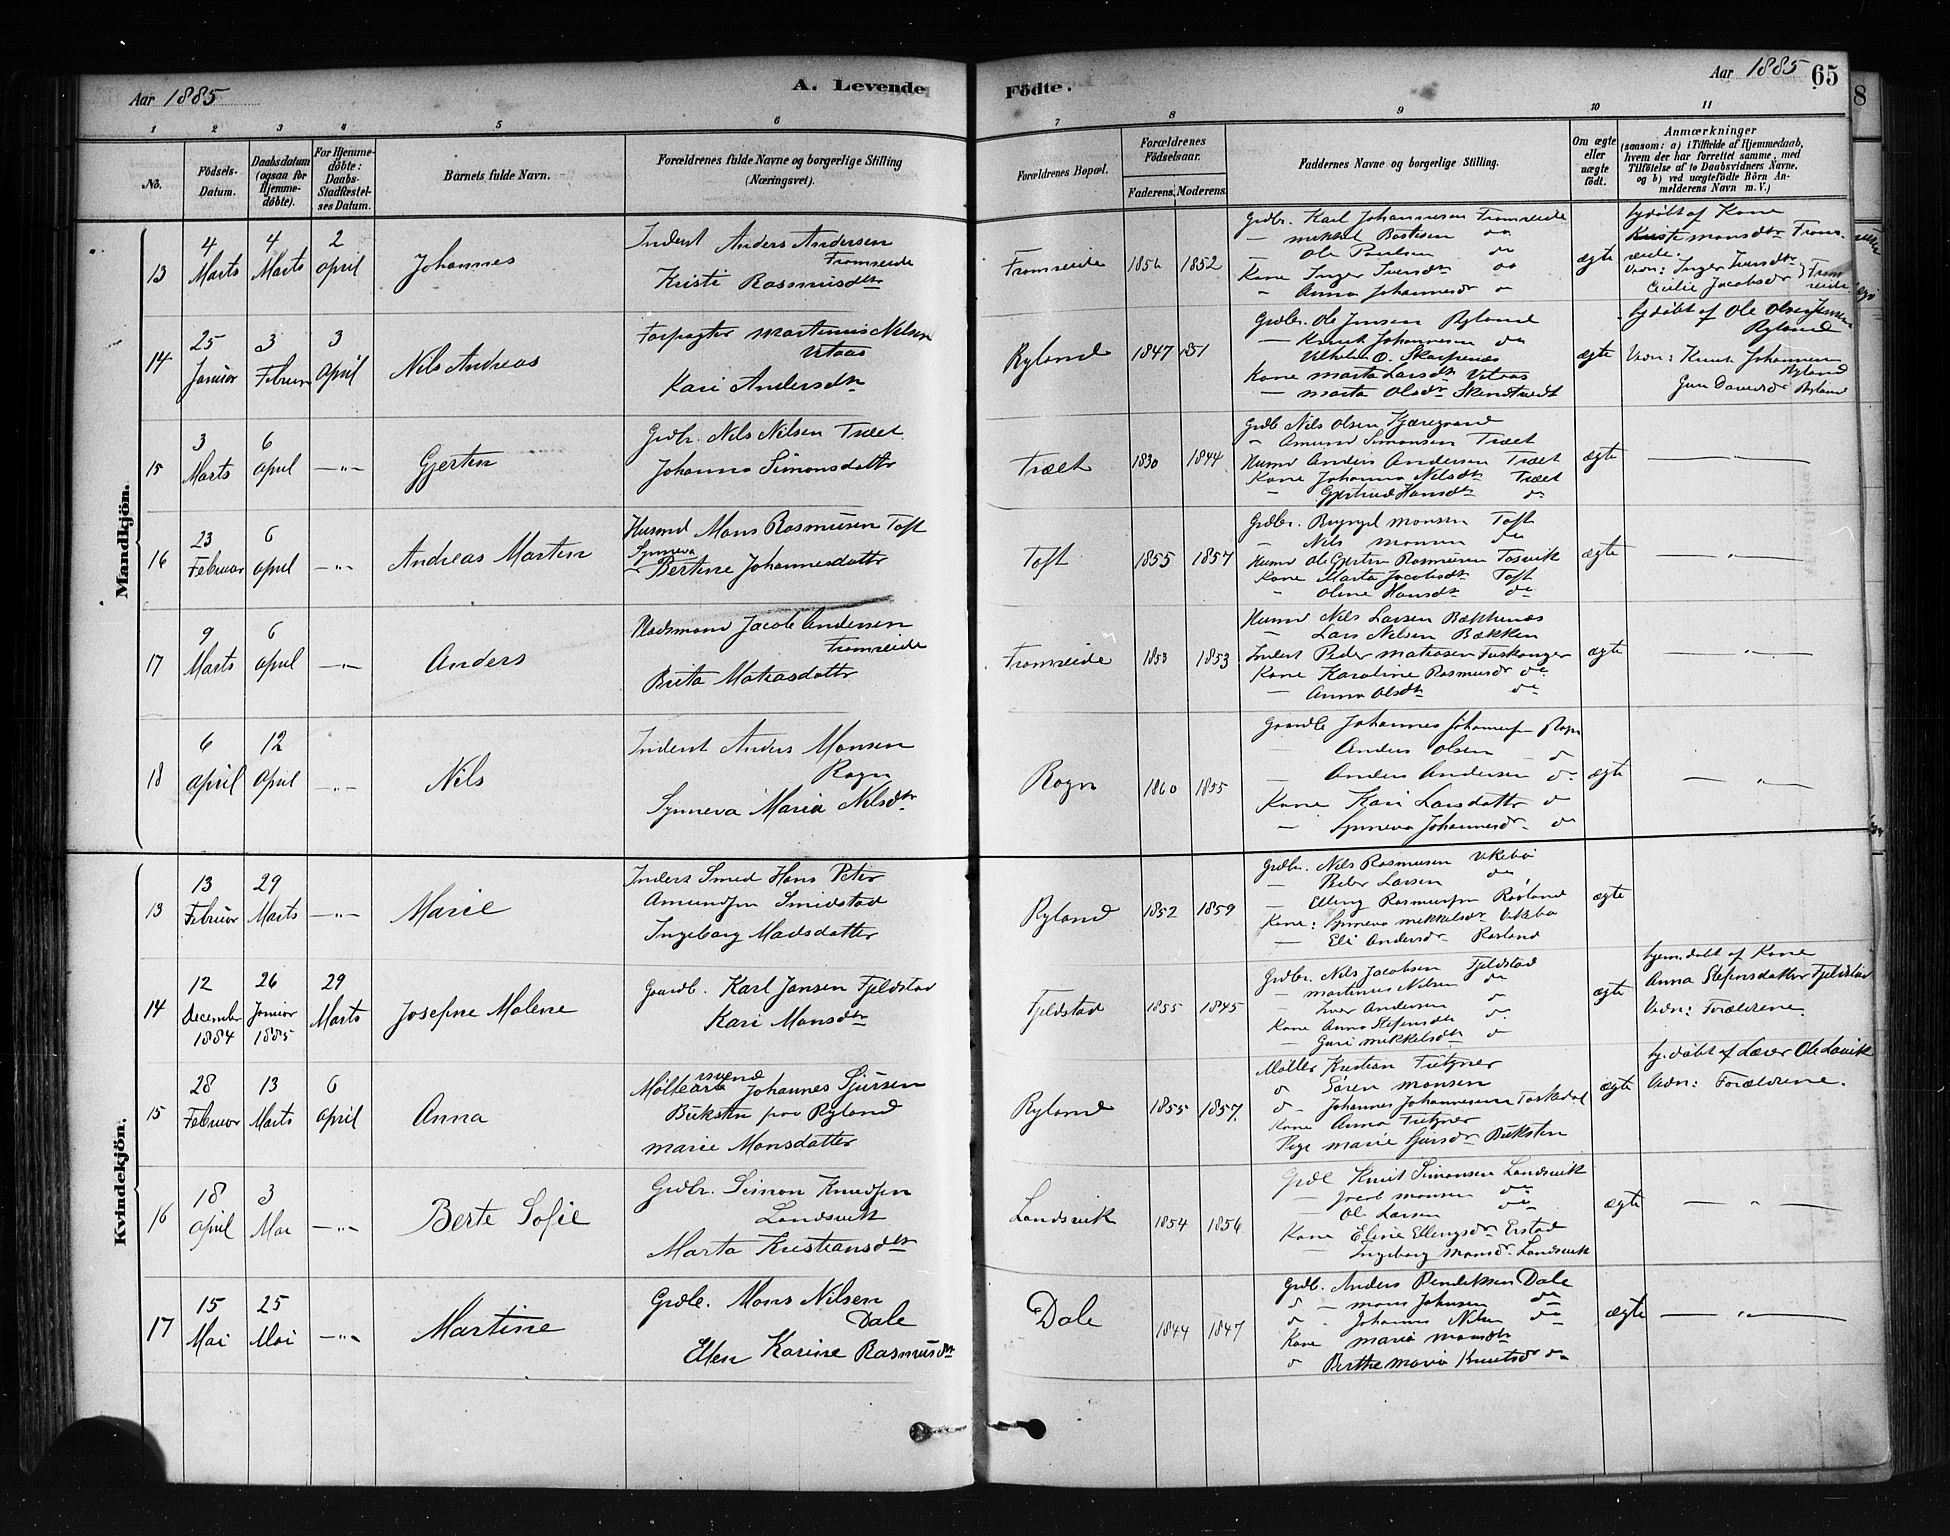 Aar 1885
A. Levende
Födte.
Aar 1885
65
1 2 3 4 5 6 7 8 9 10 11
No.
Födsels-
Datum.
Daabsdatum
(ogsaa for
Hjemme-
döbte).
For Hjemme-
döbte:
Daabs-
Stadfæstel-
ses Datum.
Barnets fulde Navn.
Forældrenes fulde Navne og borgerlige Stilling
(Næringsvei).
Forældrenes Bopæl.
Forældrenes
Födselsaar.
Faderens. Moderens.
Faddernes Navne og borgerlige Stilling.
Om ægte
eller
uægte
födt.
Anmærkninger
(saasom: a) i Tilfælde af Hjemmedaab,
hvem der har forrettet samme, med
Tilföielse af to Daabsvidners Navne,
og b) ved uægtefödte Börn An-
melderens Navn m. V.)
Mandkjön.
13
4 Marts
4 Marts
2 April
Johannes
Inderst Anders Andersen
Fromreide
Kristi Rasmusdtr
Fromreide
1856 1852
Grdbr. Karl Johannesen Fromreide
— Mikkel Bastesen do
— Ole Paulsen do
Kone Inger Iversdtr do
— Anna Johannesdr do
ægte
hjdöbt af Kone
Kriste Monsdtr From-
reide.
Vidn: Inger Iversdtr
Cecilie Jacobsdr } From
reide.
14
25 Januar
3 Februar
3 April
Nils Andreas
Forpagter Martinus Nilsen
Vetaas
Kari Andersdtr
Ryland
1847 1851
Grdbr. Ole Jensen Ryland
— Knut Johannesen do
Vilhelm O. Skarpenæs
Kone Marta Larsdtr Vetaas
— Marta Olsdr
ægte
hjdöbt af Ole Olsen
Ryland
Vidn: Knut Johannesen
Ryland
Ryland
15
3 Marts
6 April
— „ —
Gjertin
Grdbr. Nils Nilsen Træet
Johanna Simonsdattr
Træet
1830 1844
Grdb Nils Olsen Kjæregaard
" Amund Simonsen Træet
Husmd Anders Andersen Træet
Kone Johanna Nilsdtr Træet
— Gjertrud Hansdtr do
ægte
— „ —
16
23 Februar
6 April
— „ —
Andreas Martin
Husmd Mons Rasmusen Toft
Synneva
Bertine Johannesdattr
Toft
1855 1857
Grdbr. Brynjel Monsen Toft
— Nils Monsen do
Husmd Ole Gjertin Rasmusen Tosvik
Kone Marta Jacobsdtr Toft
— Oline Hansdtr do
ægte
— „ —
17
9 Marts
6 April
— „ —
Anders
Pladsmand Jacob Andersen
Fromreide
Brita Matiasdattr
Fromreide
1853 1853
Husmd Nils Larsen Bækkenæs
— Lars Nilsen Bækken
Inderst Peder Matiasen Tuskanger
Kone Karoline Rasmusdr do
— Anna Olsdtr do
ægte
— „ —
18
6 April
12 April
— „ —
Nils
Inderst Anders Monsen
Rogn
Synneva Maria Nilsdtr
Rogn
1860 1855
Gaardb Johannes Johannesen Rogn
— Anders Olsen do
— Anders Andersen do
Kone Kari Larsdattr do
— Synneva Johannesdr do
ægte
— „ —
Kvindekjön.
13
13 Februar
29 Marts
— „ —
Marie
Inderst Smed Hans Peter
Amundsen Smidstad
Ingeborg Madsdatter
Ryland
1852 1859
Grdbr. Nils Rasmusen Vikebø
— Peder Larsen do
— Elling Rasmusen Røsland
Kone: Synneva Mikkelsdr Vikbø
— Eli Andersdr Røsland
ægte
14
12 December 1884
26 Januar 1885
29 Marts
Josefine Malene
Gaardb. Karl Jansen Fjeldstad
Kari Monsdtr
Fjeldstad
1855 1845
Grdbr. Nils Jacobsen Fjeldstad
— Martinus Nilsen do
— Iver Andersen do
Kone Anna Stefensdtr do
— Guri Mikkelsdtr do
ægte
hjem.döbt af Kone
Anna Stefensdatter Fjeldstad
Vidn: Forældrene.
15
28 Februar
13 Marts
6 April
Anna
Møllersvend Johannes Sjursen
Buksten paa Ryland
Marie Monsdatter
Ryland
1855 1857
Møller Kristian Fritzner
do Søren Monsen
do Johannes Johannesen Toskedal
Kone Anna Fritzner
Pige Marie Sjursdr Buksten
ægte
hj.döbt af Lærer Ole Lavik
Vidn: Forældrene.
16
18 April
3 Mai
— „ —
Berte Sofie
Grdbr. Simon Knudsen
Landsvik
Marta Kristiansdtr
Landsvik
1854 1856
Grdb Knut Simonsen Landsvik
— Jacob Monsen do
— Ole Larsen do
Kone Eline Ellingsdr Erstad
— Ingeborg Monsdr Landsvik
ægte
— „ —
17
15 Mai
25 Mai
— „ —
Martine
Grdb. Mons Nilsen
Dale
Ellen Karine Rasmusdtr
Dale
1844 1847
Grdb. Anders Bendiksen Dale
do — Mons Johnsen do
do Johannes Nilsen do
Kone Maria Monsdtr
do Berthe Maria Knutsdr do
ægte
— „ —